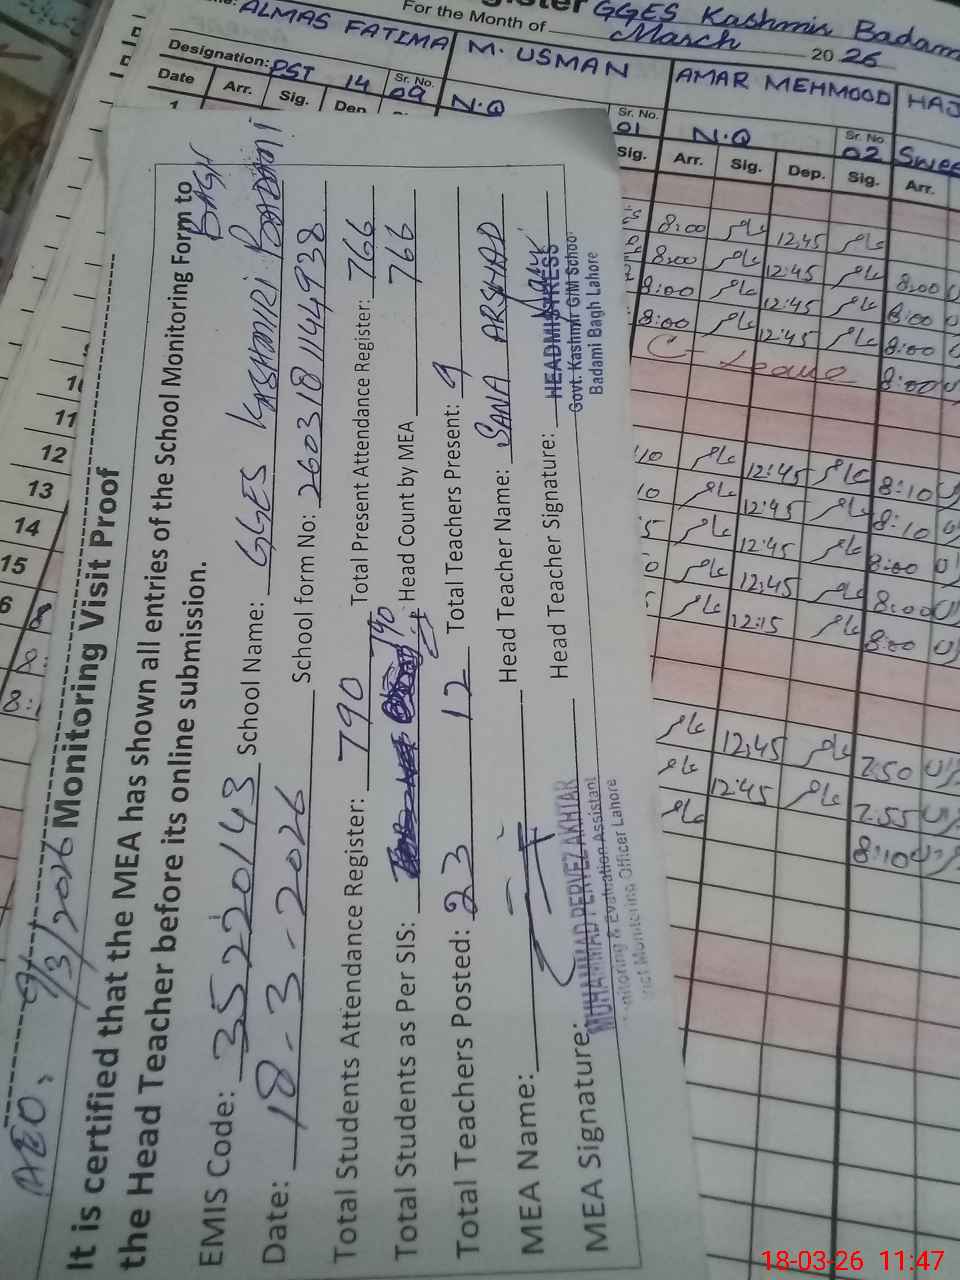 AEO, 9/3/2026
Monitoring Visit Proof
It is certified that the MEA has shown all entries of the School Monitoring Form to
the Head Teacher before its online submission.
EMIS Code: 35220143 School Name: GGES KASHMIRI BADAMI BAGH
Date: 18-3-2026 School form No: 2603181144938
Total Students Attendance Register: 790 Total Present Attendance Register: 766
Total Students as Per SIS: 790 Head Count by MEA 766
Total Teachers Posted: 23 12 Total Teachers Present: 9
MEA Name: Head Teacher Name: SANA ARSHAD
MEA Signature: Head Teacher Signature:
MUHAMMAD PERVEZ AKHTAR
Monitoring & Evaluation Assistant
District Monitoring Officer Lahore
HEADMISTRESS
Govt. Kashmir G/M School
Badami Bagh Lahore
GGES Kashmir Badami
For the Month of March 2026
ALMAS FATIMA M. USMAN AMAR MEHMOOD
Designation: PST 14 Sr. No. 09 N.Q Sr. No. 01 N.Q Sr. No. 02
Date Arr. Sig. Dep. Sig. Arr. Sig. Dep. Sig. Arr.
1
8:00 12:45
8:00 12:45 8:00
8:00 12:45 8:00
8:00 12:45 8:00
C- Leave 8:00
11
12 12:45 8:10
13 12:45 8:10
14 12:45 8:00
15 12:45 8:00
12:15 8:00
12:45 7:50
12:45 7:55
8:10
18-03-26 11:47